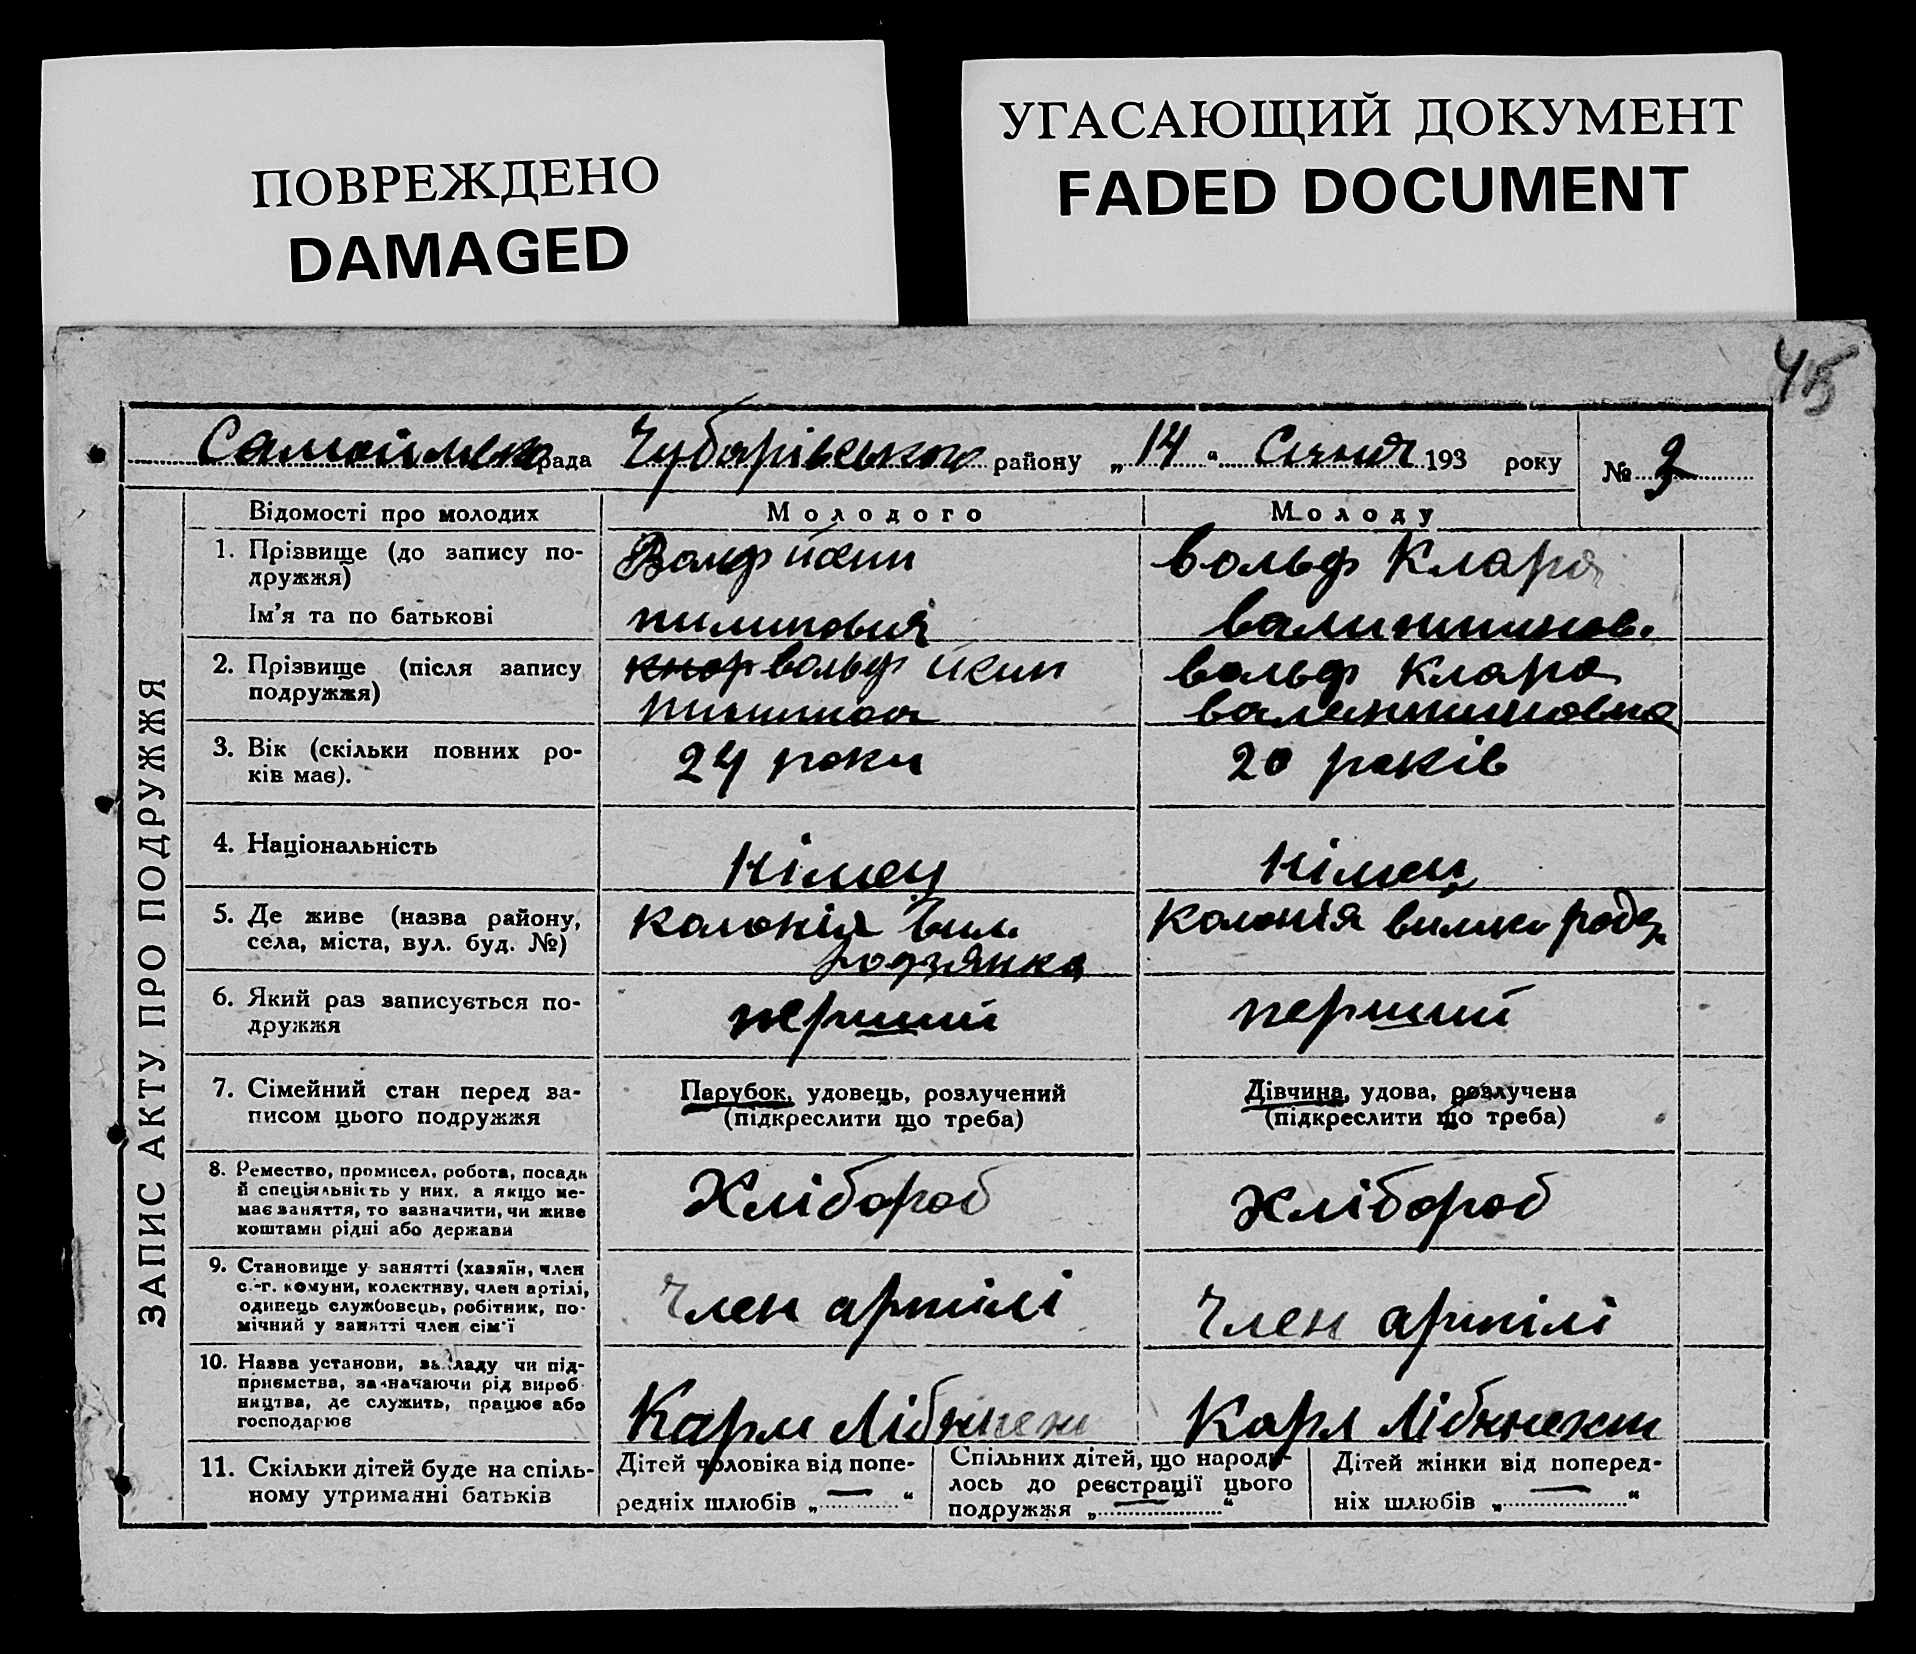 ПОВРЕЖДЕНО
DAMAGED
УГАСАЮЩИЙ ДОКУМЕНТ
FADED DOCUMENT
45
рада Чубарівського району „14“ Січня 193 року
№ 2
ЗАПИС АКТУ ПРО ПОДРУЖЖЯ
Відомості про молодих
Молодого
Молоду
1. Прізвище (до запису по-
дружжя)
Ім'я та по батькові
Волф
пилипович
вольф Клара
2. Прізвище (після запису
подружжя)
кнор вольф
вольф Клара
валентиновна
3. Вік (скільки повних ро-
ків має).
24 роки
20 років
4. Національність
Німец
Німец
5. Де живе (назва району,
села, міста, вул. буд. №)
Колонія Вил.
родзянка
Колонія родз.
6. Який раз записується по-
дружжя
перший
перший
7. Сімейний стан перед за-
писом цього подружжя
Парубок, удовець, розлучений
(підкреслити що треба)
Дівчина, удова, розлучена
(підкреслити що треба)
8. Ремество, промисел, робота, посади
й спеціяльність у них, а якщо не-
має заняття, то зазначити, чи живе
коштами рідні або держави
Хлібороб
Хлібороб
9. Становище у занятті (хазяїн, член
с.-г. комуни, колективу, член артілі,
одинець службовець, робітник, по-
мічний у занятті член сім'ї
Член артілі
Член артілі
10. Назва установи, закладу чи під-
приємства, зазначаючи рід вироб-
ництва, де служить, працює або
господарює
Карл Лібкнехт
Карл Лібкнехт
11. Скільки дітей буде на спіль-
ному утриманні батьків
Дітей чоловіка від попе-
редніх шлюбів „—“
Спільних дітей, що народи-
лось до реєстрації цього
подружжя „—“
Дітей жінки від поперед-
ніх шлюбів „—“